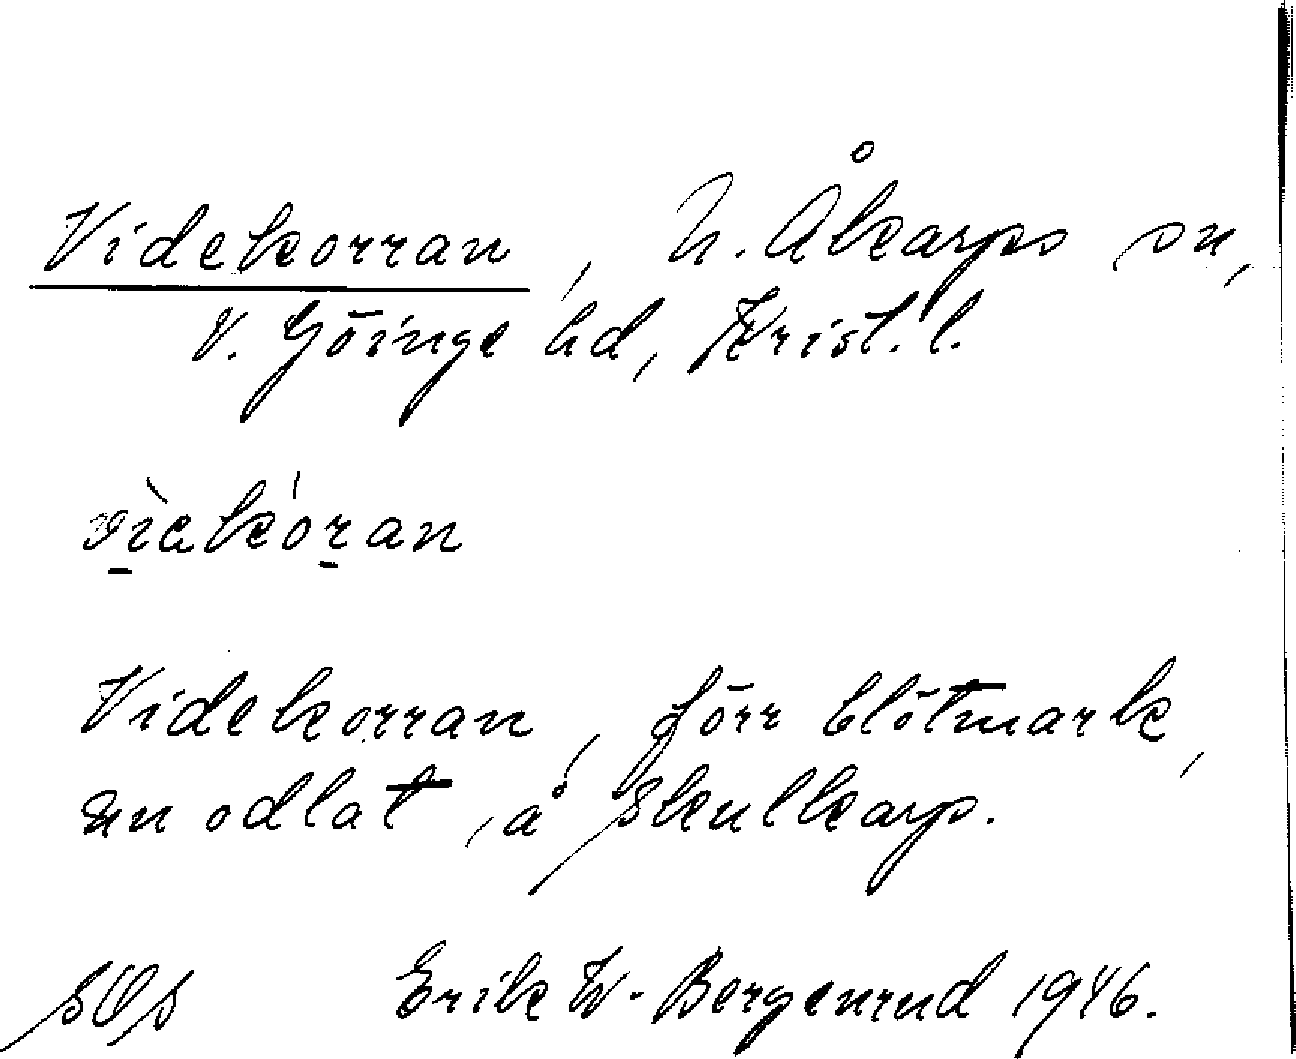 Videkorran, N. Åkarps sn,
V. Göinge hd, Krist. l.
vìekóran
Videkorran, förr blötmark,
nu odlat, å Skulkarp.
Erik W-Bergenrud 1946.